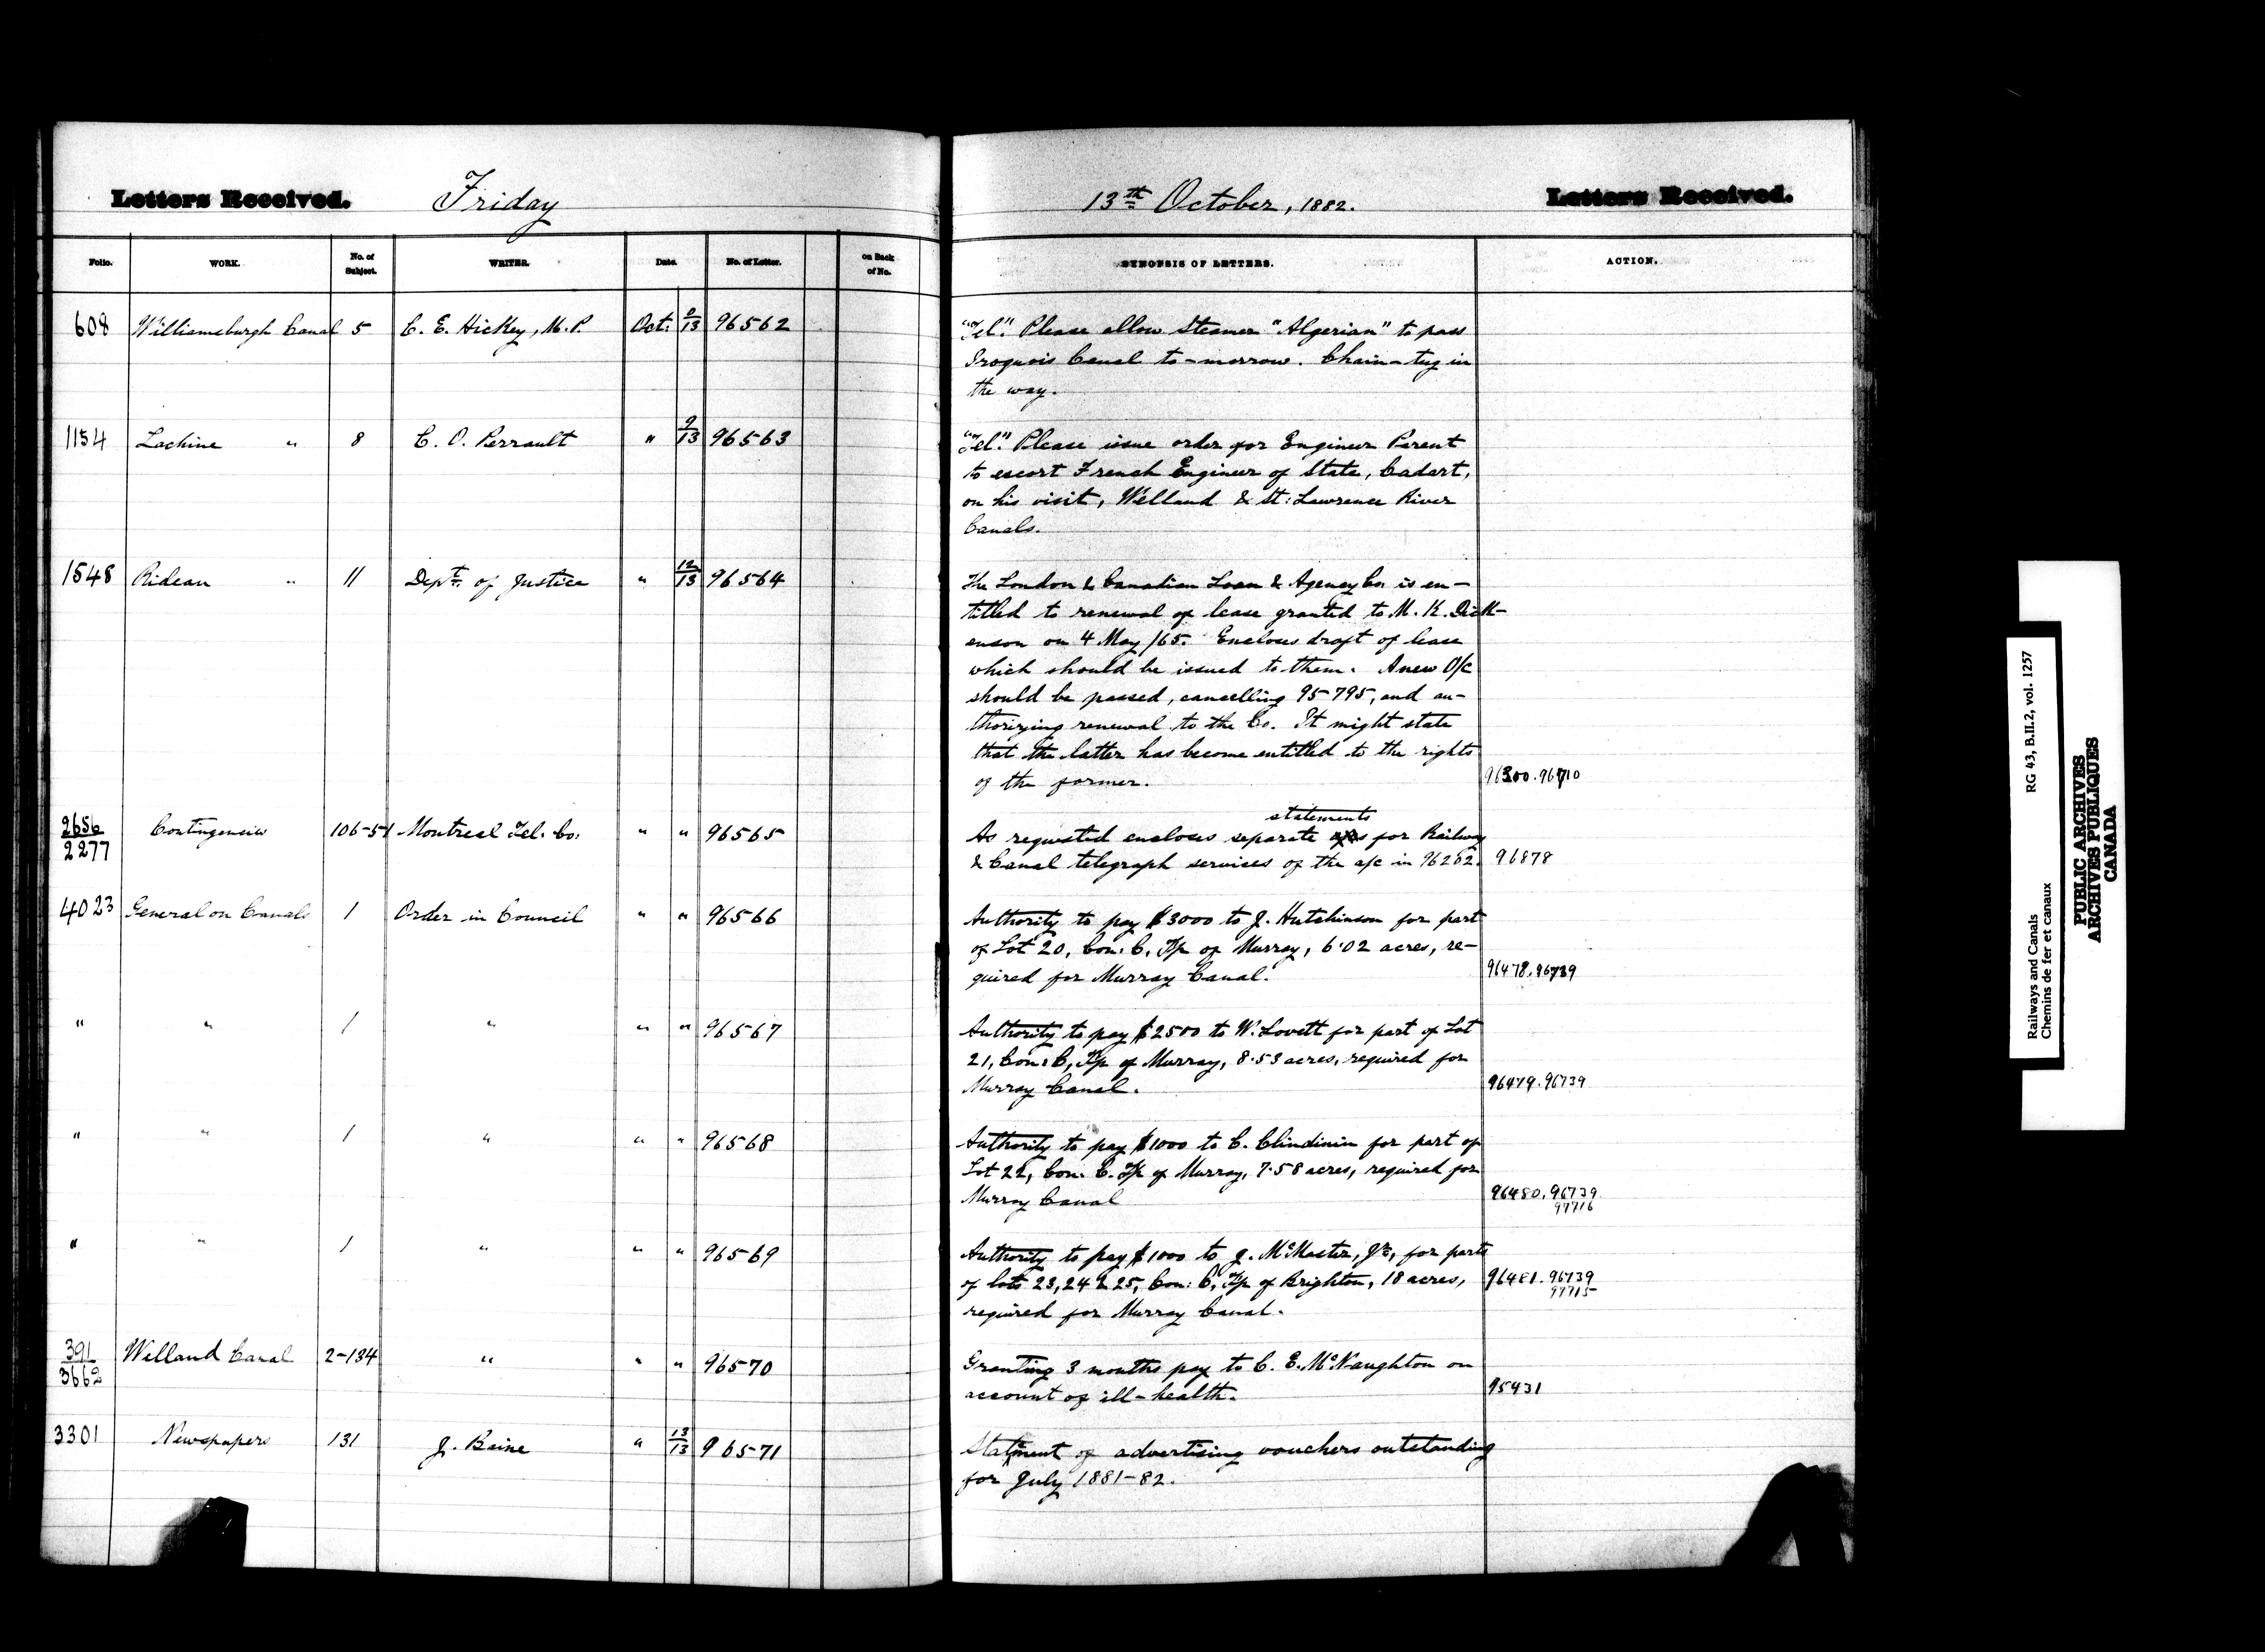 Letters Received. Friday
Folio. WORK. No. of Subject. WRITER. Date. No. of Letter. on Back of No.
608 Williamsburgh Canal 5 C. E. Hickey, M.P. Oct: 9/13 96562
1154 Lachine " 8 C. O. Perrault " 9/13 96563
1548 Rideau " 11 Dept. of Justice " 12/13 96564
2656/2277 Contingencies 106-51 Montreal Tel. Co. " " 96565
4023 General on Canals 1 Order in Council " " 96566
" " 1 " " " 96567
" " 1 " " " 96568
" " 1 " " " 96569
391/3662 Welland Canal 2-134 " " " 96570
3301 Newspapers 131 J. Baine " 13/13 96571
13th October, 1882. Letters Received.
SYNOPSIS OF LETTERS. ACTION.
"Tel." Please allow steamer "Algerian" to pass
Iroquois Canal to-morrow. Chain-tug in
the way.
"Tel." Please issue order for Engineer Parent
to escort French Engineer of State, Cadart,
on his visit, Welland & St: Lawrence River
Canals.
The London & Canadian Loan & Agency Co. is en-
titled to renewal of lease granted to M. K. Dick-
enson on 4 May /65. Encloses draft of lease
which should be issued to them. A new O/C
should be passed, cancelling 95795, and au-
thorizing renewal to the Co. It might state
that the latter has become entitled to the rights
of the former. 96300. 96710
statements
As requested encloses separate for Railway
& Canal telegraph services of the a/c in 96202. 96878
Authority to pay $3000 to J. Hutchinson for part
of Lot 20, Con: C, Tp of Murray, 6.02 acres, re-
quired for Murray Canal. 96478. 96739
Authority to pay $2500 to W. Lovett for part of Lot
21, Con: C, Tp of Murray, 8.53 acres, required for
Murray Canal. 96479. 96739
Authority to pay $1000 to C. Clindinin for part of
Lot 22, Con. C. Tp of Murray, 7.58 acres, required for
Murray Canal 96480. 96739
97716
Authority to pay $1000 to J. McMaster, Jr., for parts
of lots 23, 24 & 25, Con: C, Tp of Brighton, 18 acres, 96481. 96739
97715
required for Murray Canal.
Granting 3 months pay to C. E. McNaughton on
account of ill-health. 95431
Statment of advertising vouchers outstanding
for July 1881-82.
Railways and Canals RG 43, B.II.2, vol. 1257
Chemins de fer et canaux
PUBLIC ARCHIVES
ARCHIVES PUBLIQUES
CANADA